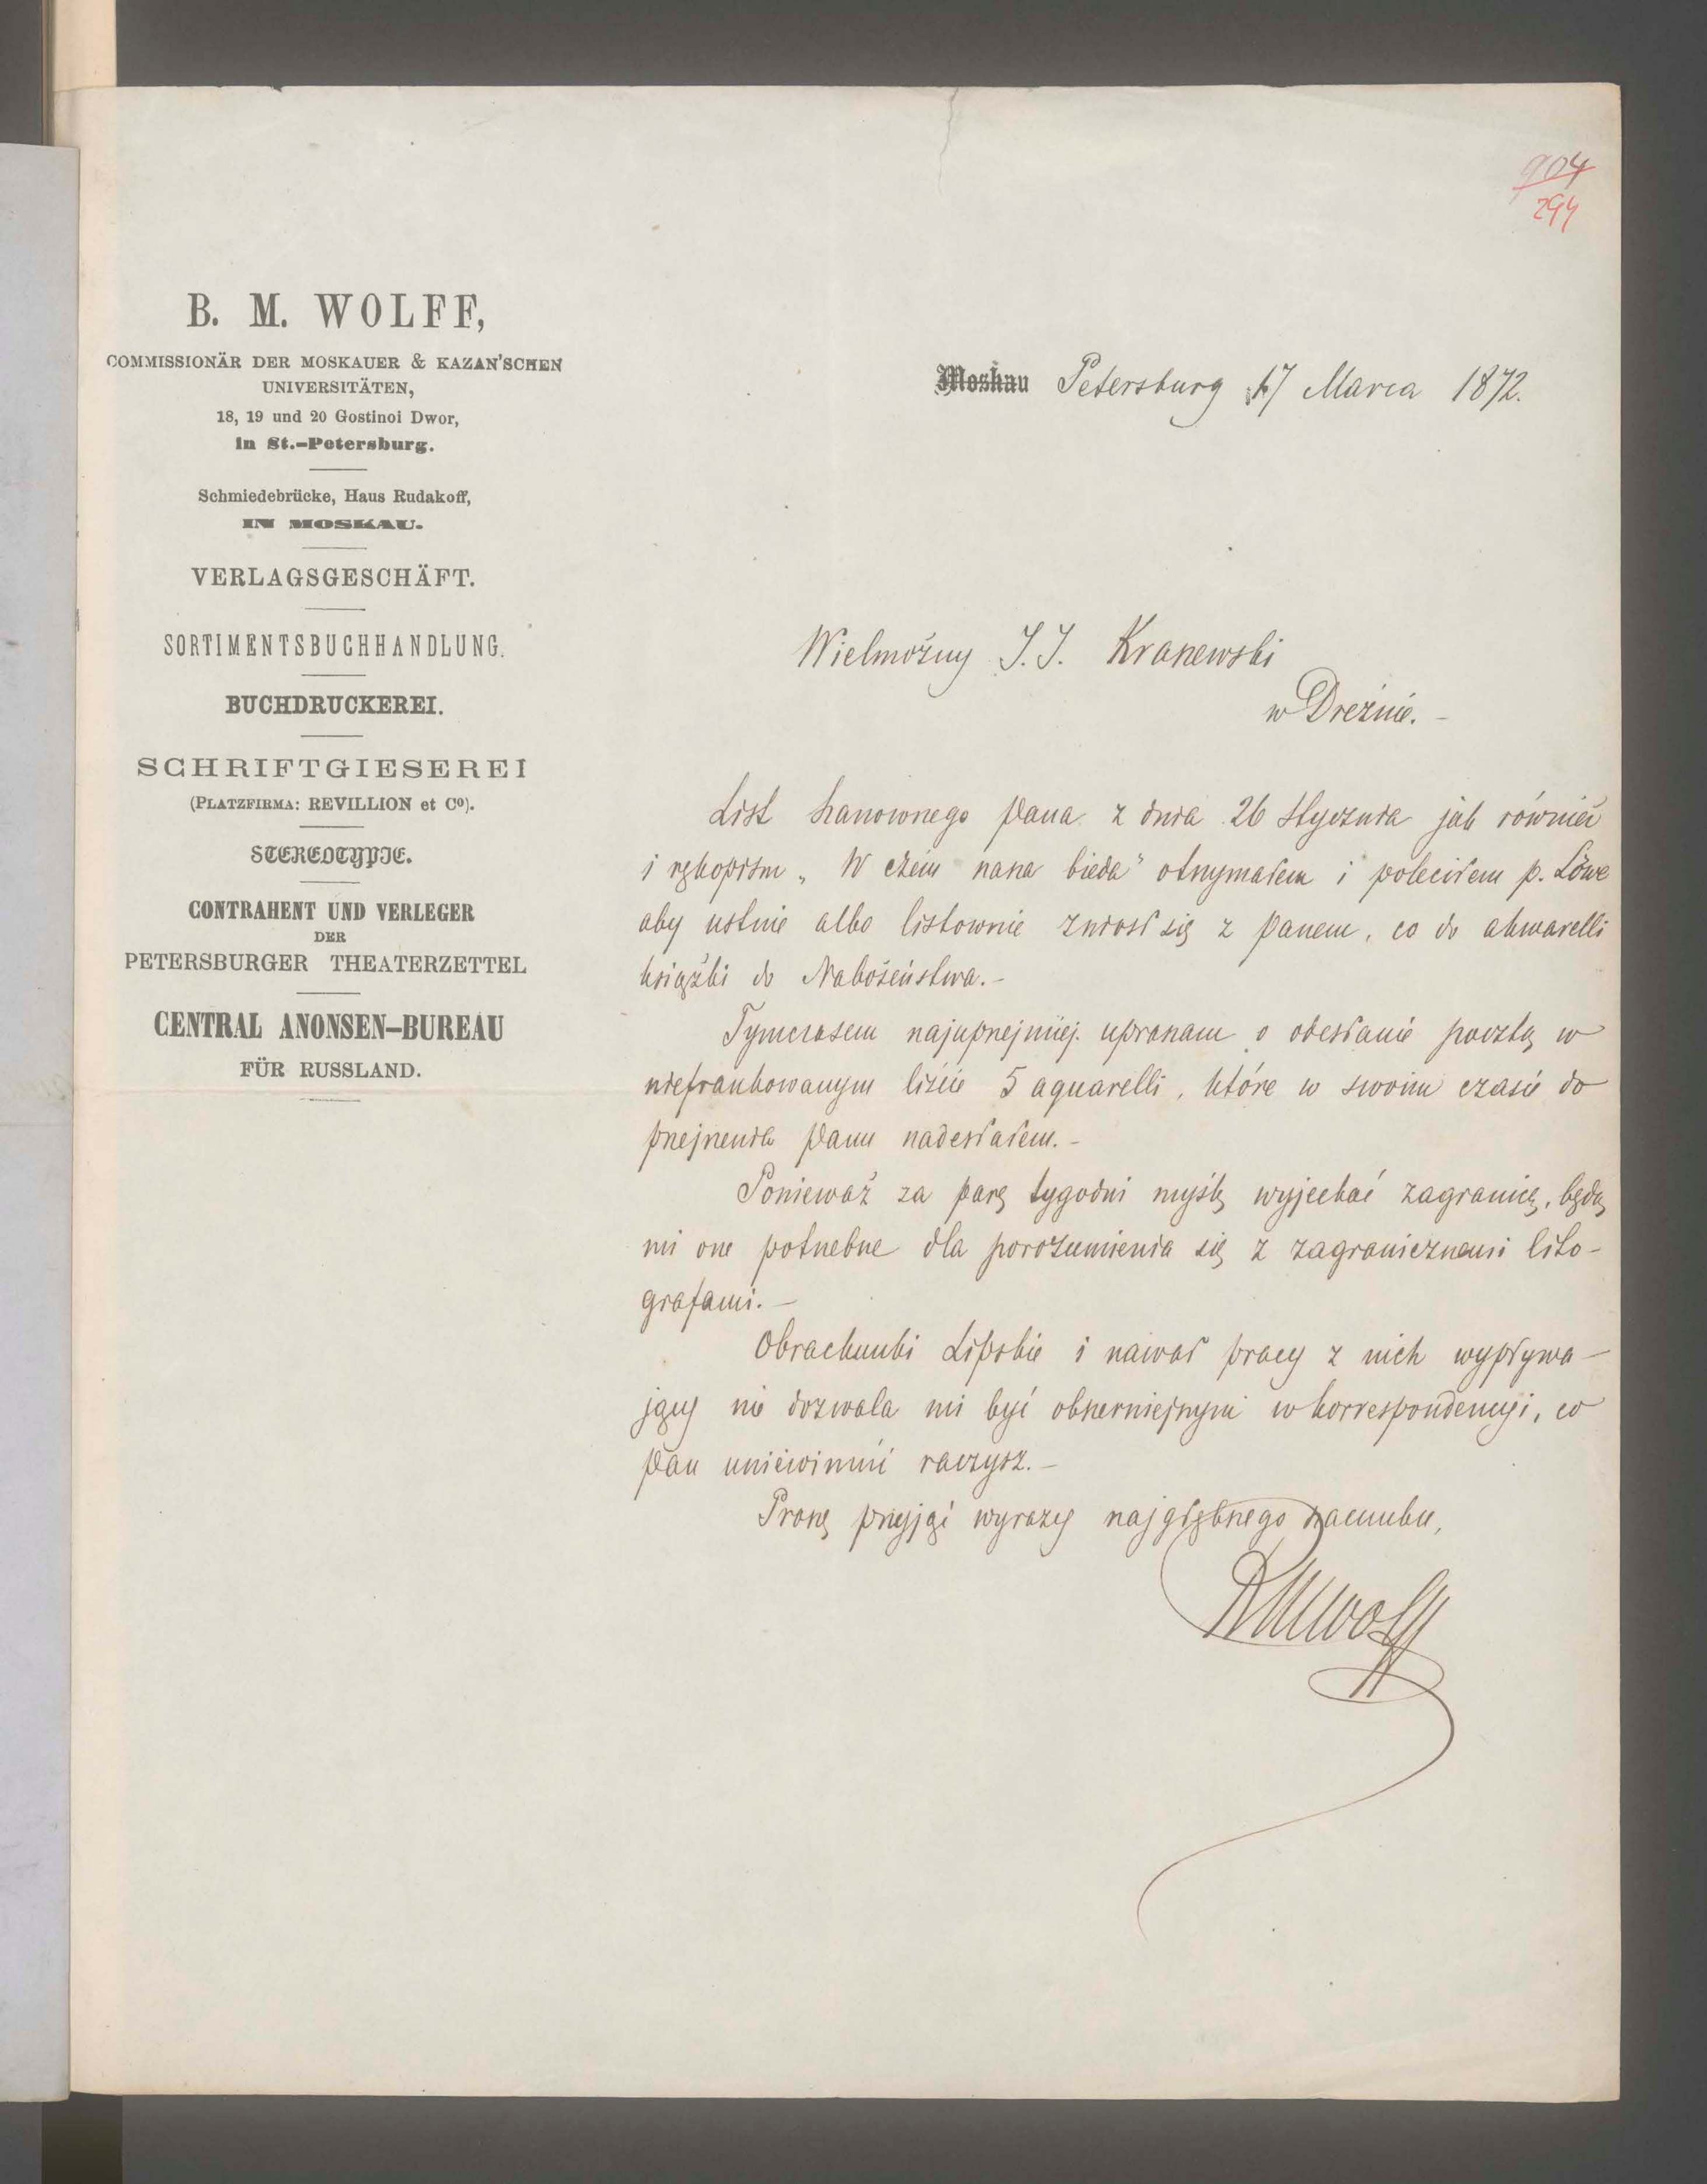 904
294
B. M. WOLFF,
COMMISSIONÄR DER MOSKAUER & KAZAN'SCHEN
UNIVERSITÄTEN,
18, 19 und 20 Gostinoi Dwor,
in St.-Petersburg.
Schmiedebrücke, Haus Rudakoff,
IN MOSKAU.
VERLAGSGESCHÄFT.
SORTIMENTSBUCHHANDLUNG.
BUCHDRUCKEREI.
SCHRIFTGIESEREI
(PLATZFIRMA: REVILLION et Cº).
STEREOTYPIE.
CONTRAHENT UND VERLEGER
DER
PETERSBURGER THEATERZETTEL
CENTRAL ANONSEN-BUREAU
FÜR RUSSLAND.
Moskau Petersburg 17 Marca 1872.
Wielmożny J. J. Kraszewski
w Dreźnie. -
List szanownego Pana z dnia 26 Stycznia jak również
i rękopism „W czem nasza bieda" otrzymałem i poleciłem p. Löwe
aby ustnie albo listownie zniosł się z panem, co do akwarelli
książki do Nabożeństwa. -
Tymczasem najuprzejmiej upraszam o odesłanie pocztą w
niefrankowanym liście 5 aquarelli, które w swoim czasie do
przejrzenia Panu nadesłałem. -
Ponieważ za parę tygodni myślę wyjechać zagranicę, będą
mi one potrzebne dla porozumienia się z zagranicznemi lito-
grafami. -
Obrachunki Lipskie i nawał pracy z nich wypływa-
jący nie dozwala mi być obszerniejszym w korrespondencyi, co
Pan uniewinnić raczysz. -
Proszę przyjąć wyrazy najgłębszego szacunku,
BMWolff